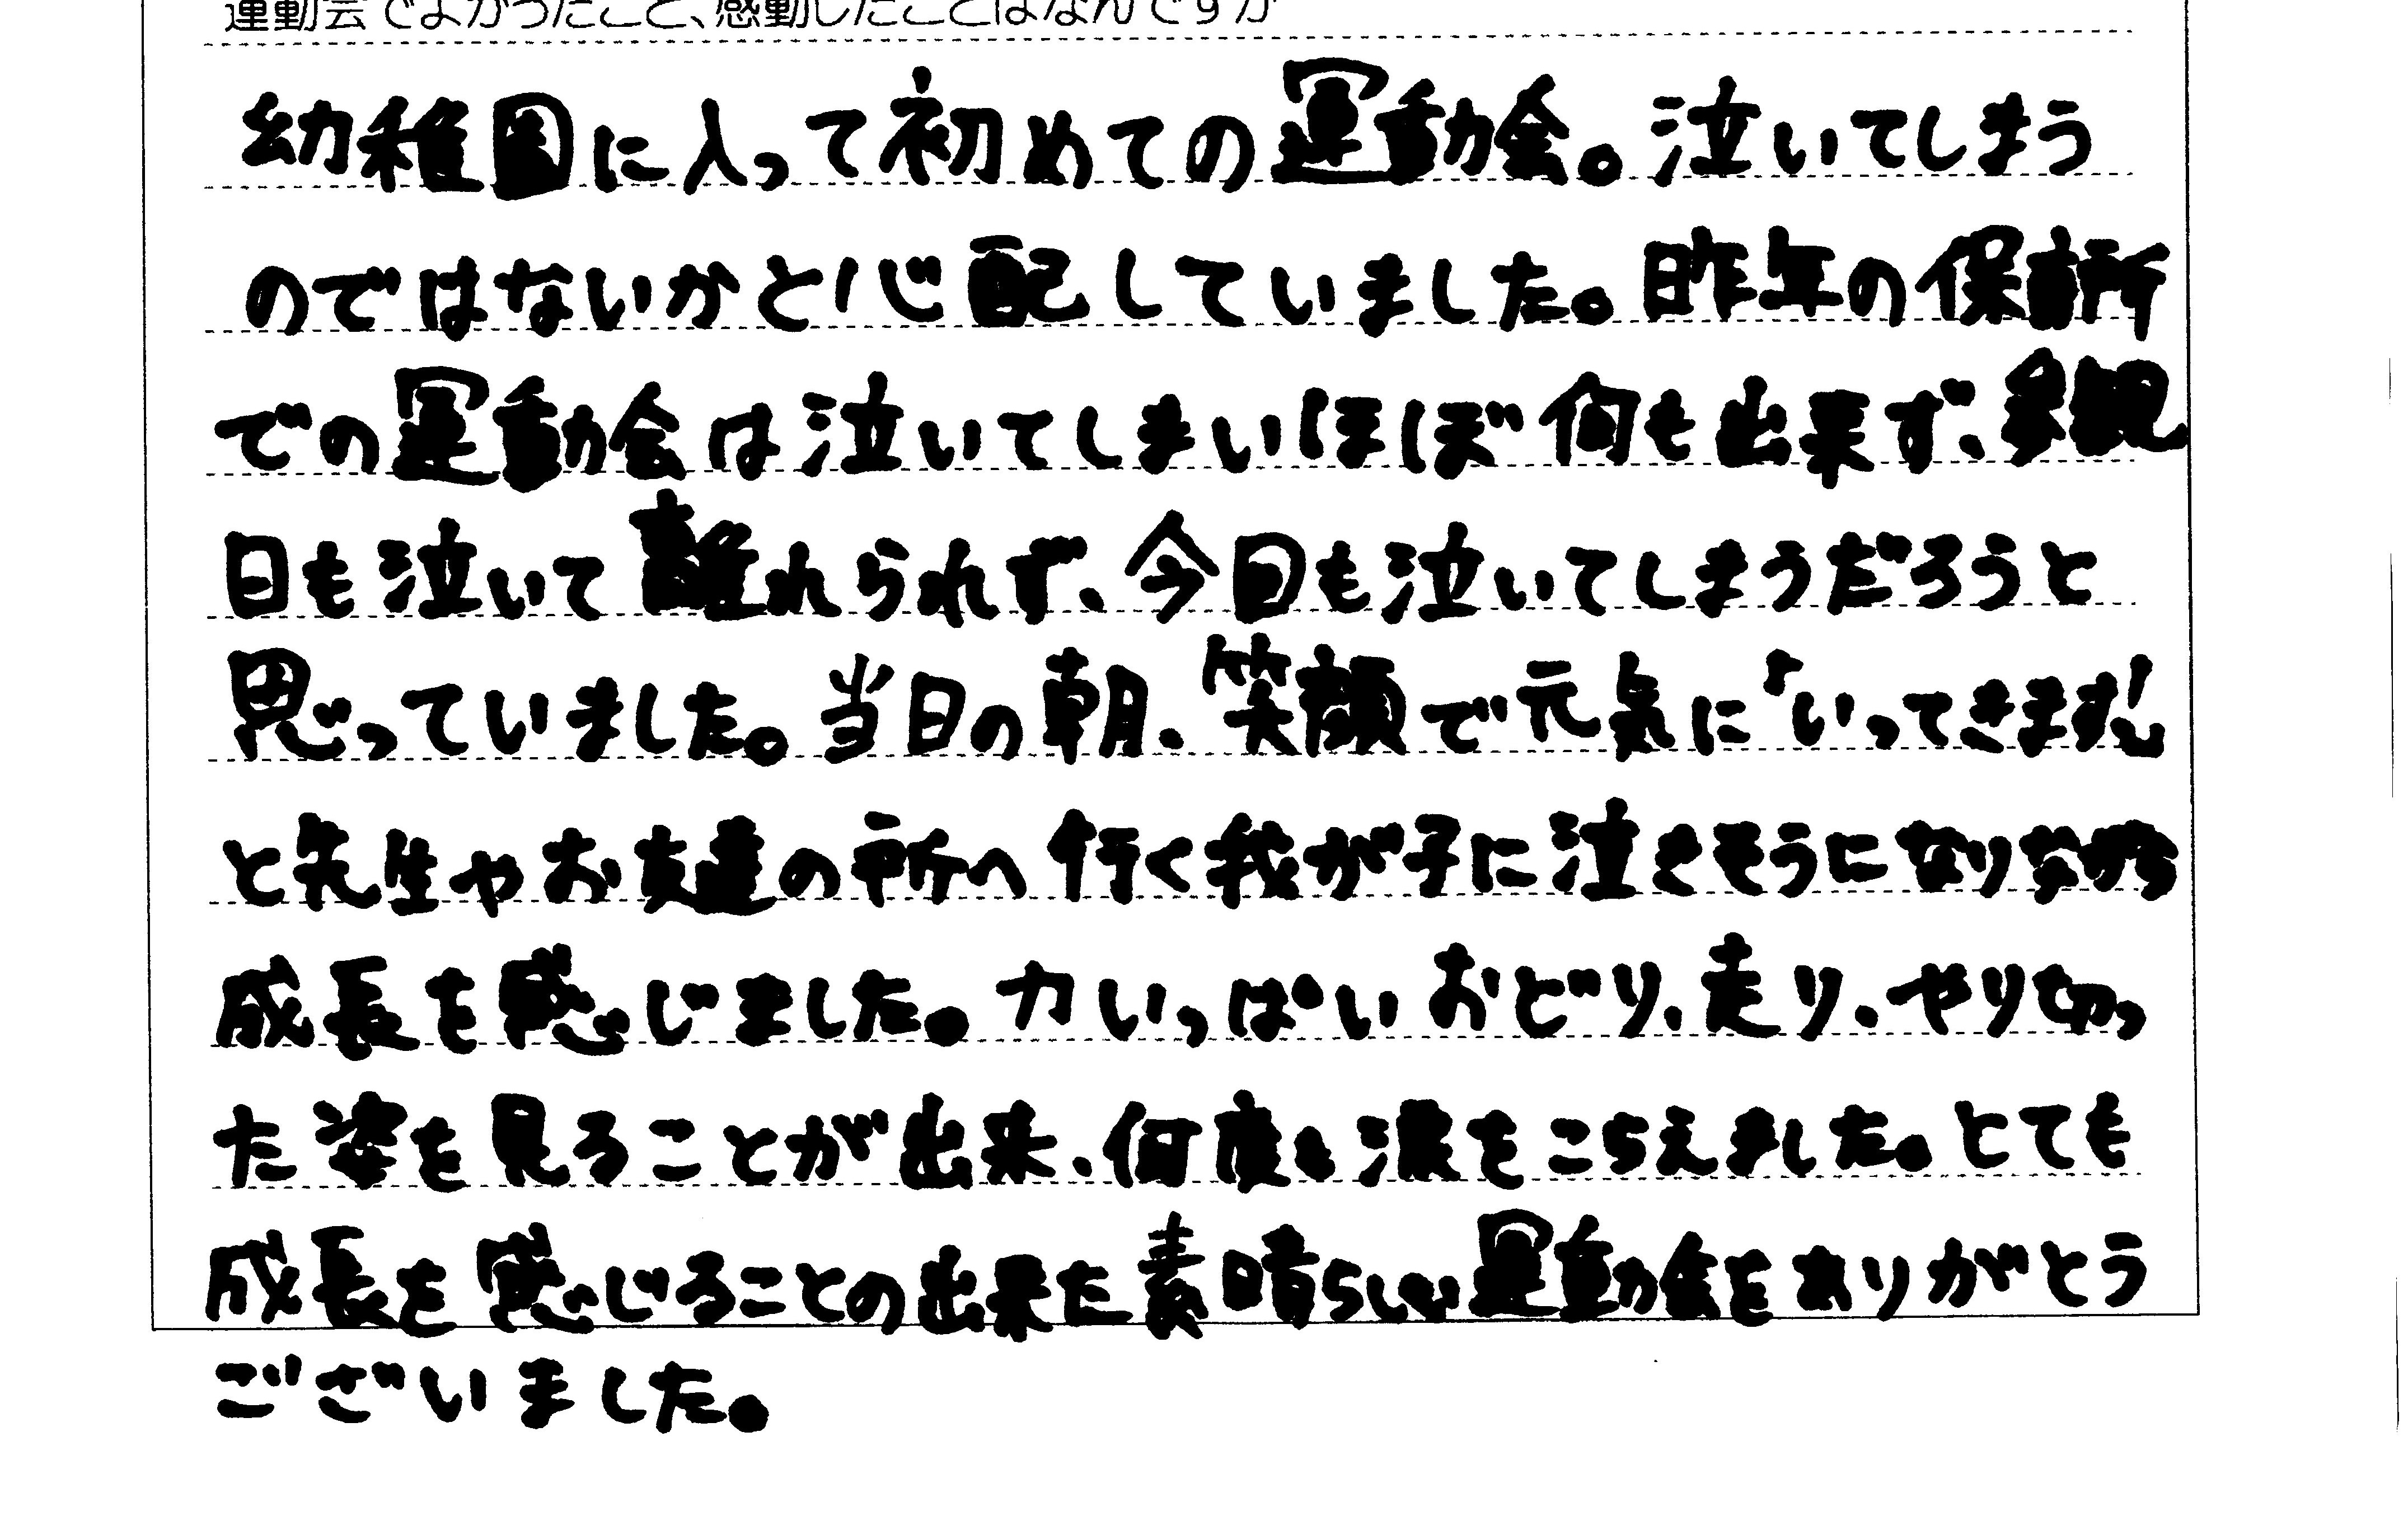 運動会でよかったこと、感動したことはなんですか
幼稚園に入って初めての運動会。泣いてしまう
のではないかと心配していました。昨年の保育所
での運動会は泣いてしまいほぼ何も出来ず、参観
日も泣いて離れられず、今回も泣いてしまうだろうと
思っていました。当日の朝、笑顔で元気に「いってきます!」
と先生やお友達の所へ行く我が子に泣きそうになりながら
成長を感じました。力いっぱいおどり、走り、やり切っ
た姿を見ることが出来、何度も涙をこらえました。とても
成長を感じることの出来た素晴らしい運動会をありがとう
ございました。